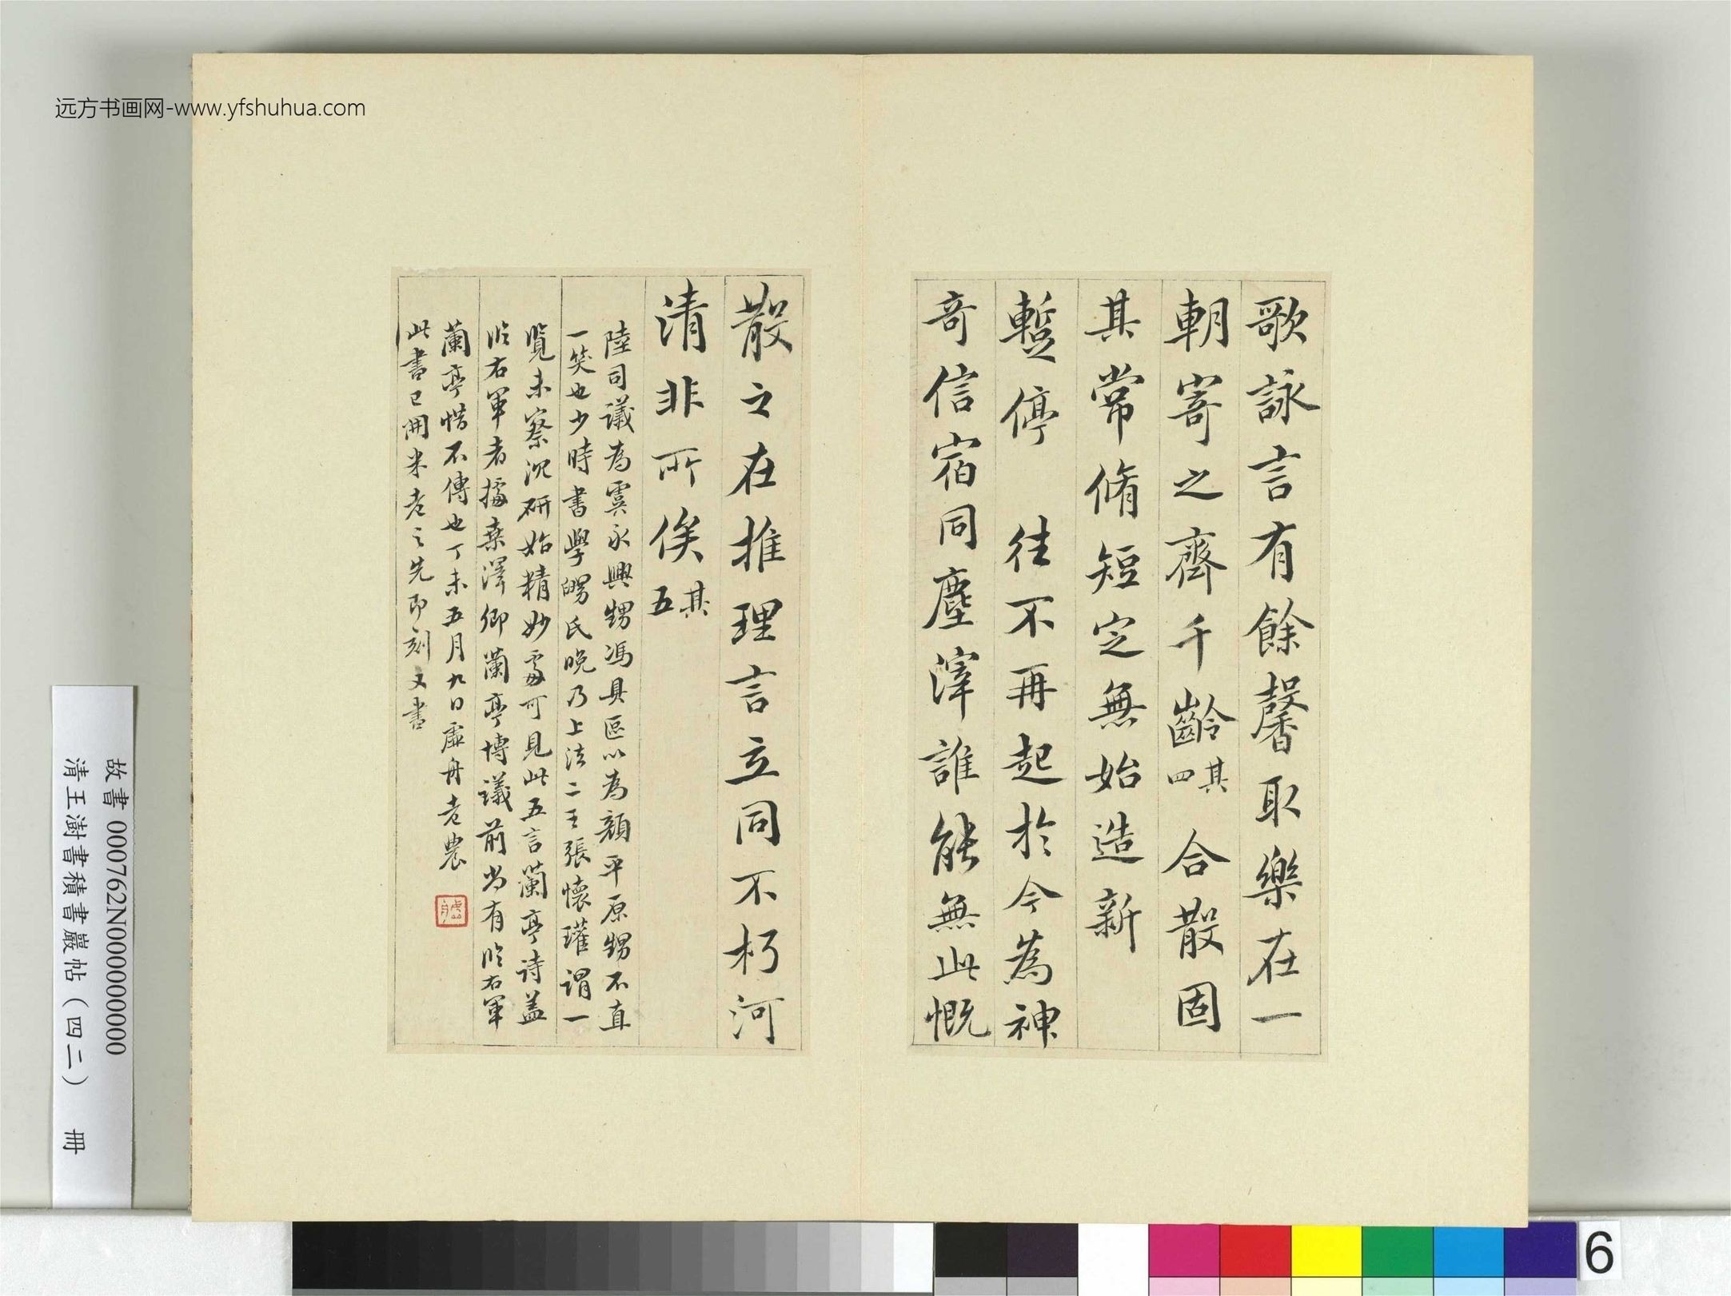 远方书画网-www.yfshuhua.com
歌詠言有餘馨取樂在一
朝寄之齊千齡其四合散固
其常脩短定無始造新
暫停往不再起於今為神
奇信宿同塵滓誰能無此慨
散之在推理言立同不朽河
清非所俟其五
陸司議為虞永興甥馮具區以為顏平原甥不直
一笑也少時書學舅氏晚乃上法二王張懷瓘謂一
覽未察沉研始精妙處可見此五言蘭亭詩蓋
臨右軍者據桑澤卿蘭亭博議前尚有臨右軍
蘭亭惜不傳也丁未五月九日虛舟老農
此書已開米老之先即刻又書
虛舟
故書 000762N000000000
清王澍書積書巖帖(四二) 冊
6